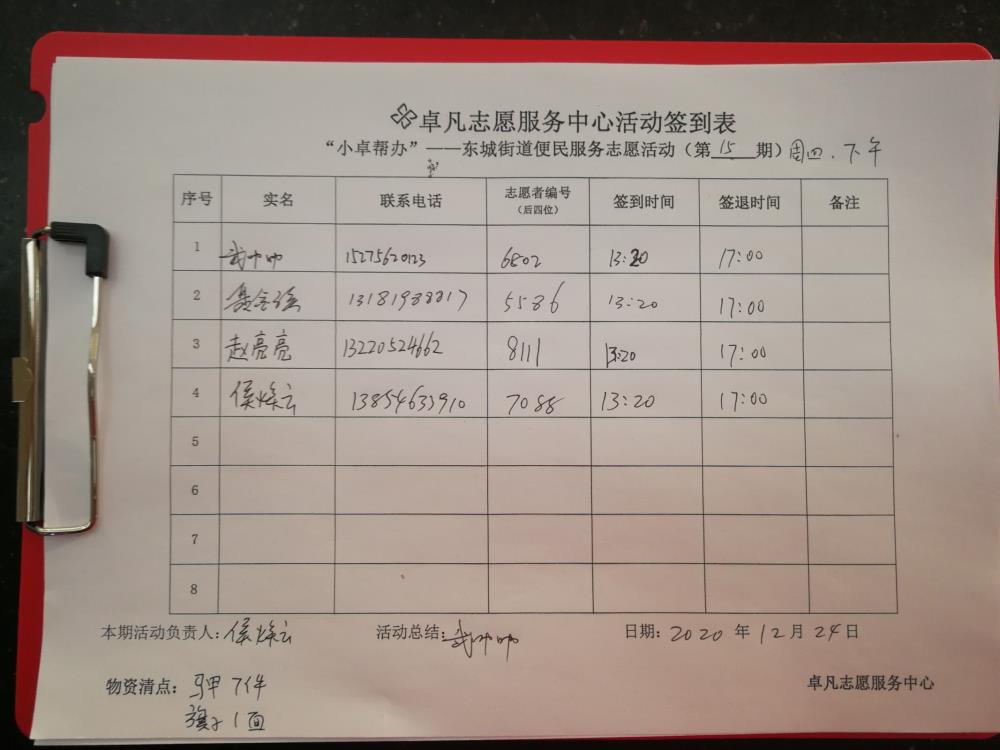 卓凡志愿服务中心活动签到表
“小卓帮办”——东城街道便民服务志愿活动（第15期）周四.下午
序号 实名 联系电话 志愿者编号（后四位） 签到时间 签退时间 备注
1 15275620123 6802 13:20 17:00
2 13181988817 5586 13:20 17:00
3 赵亮亮 13220524662 8111 13:20 17:00
4 侯焕云 13854633910 7088 13:20 17:00
5
6
7
8
本期活动负责人：侯焕云 活动总结： 日期：2020年12月24日
物资清点：马甲7件 卓凡志愿服务中心
旗子1面